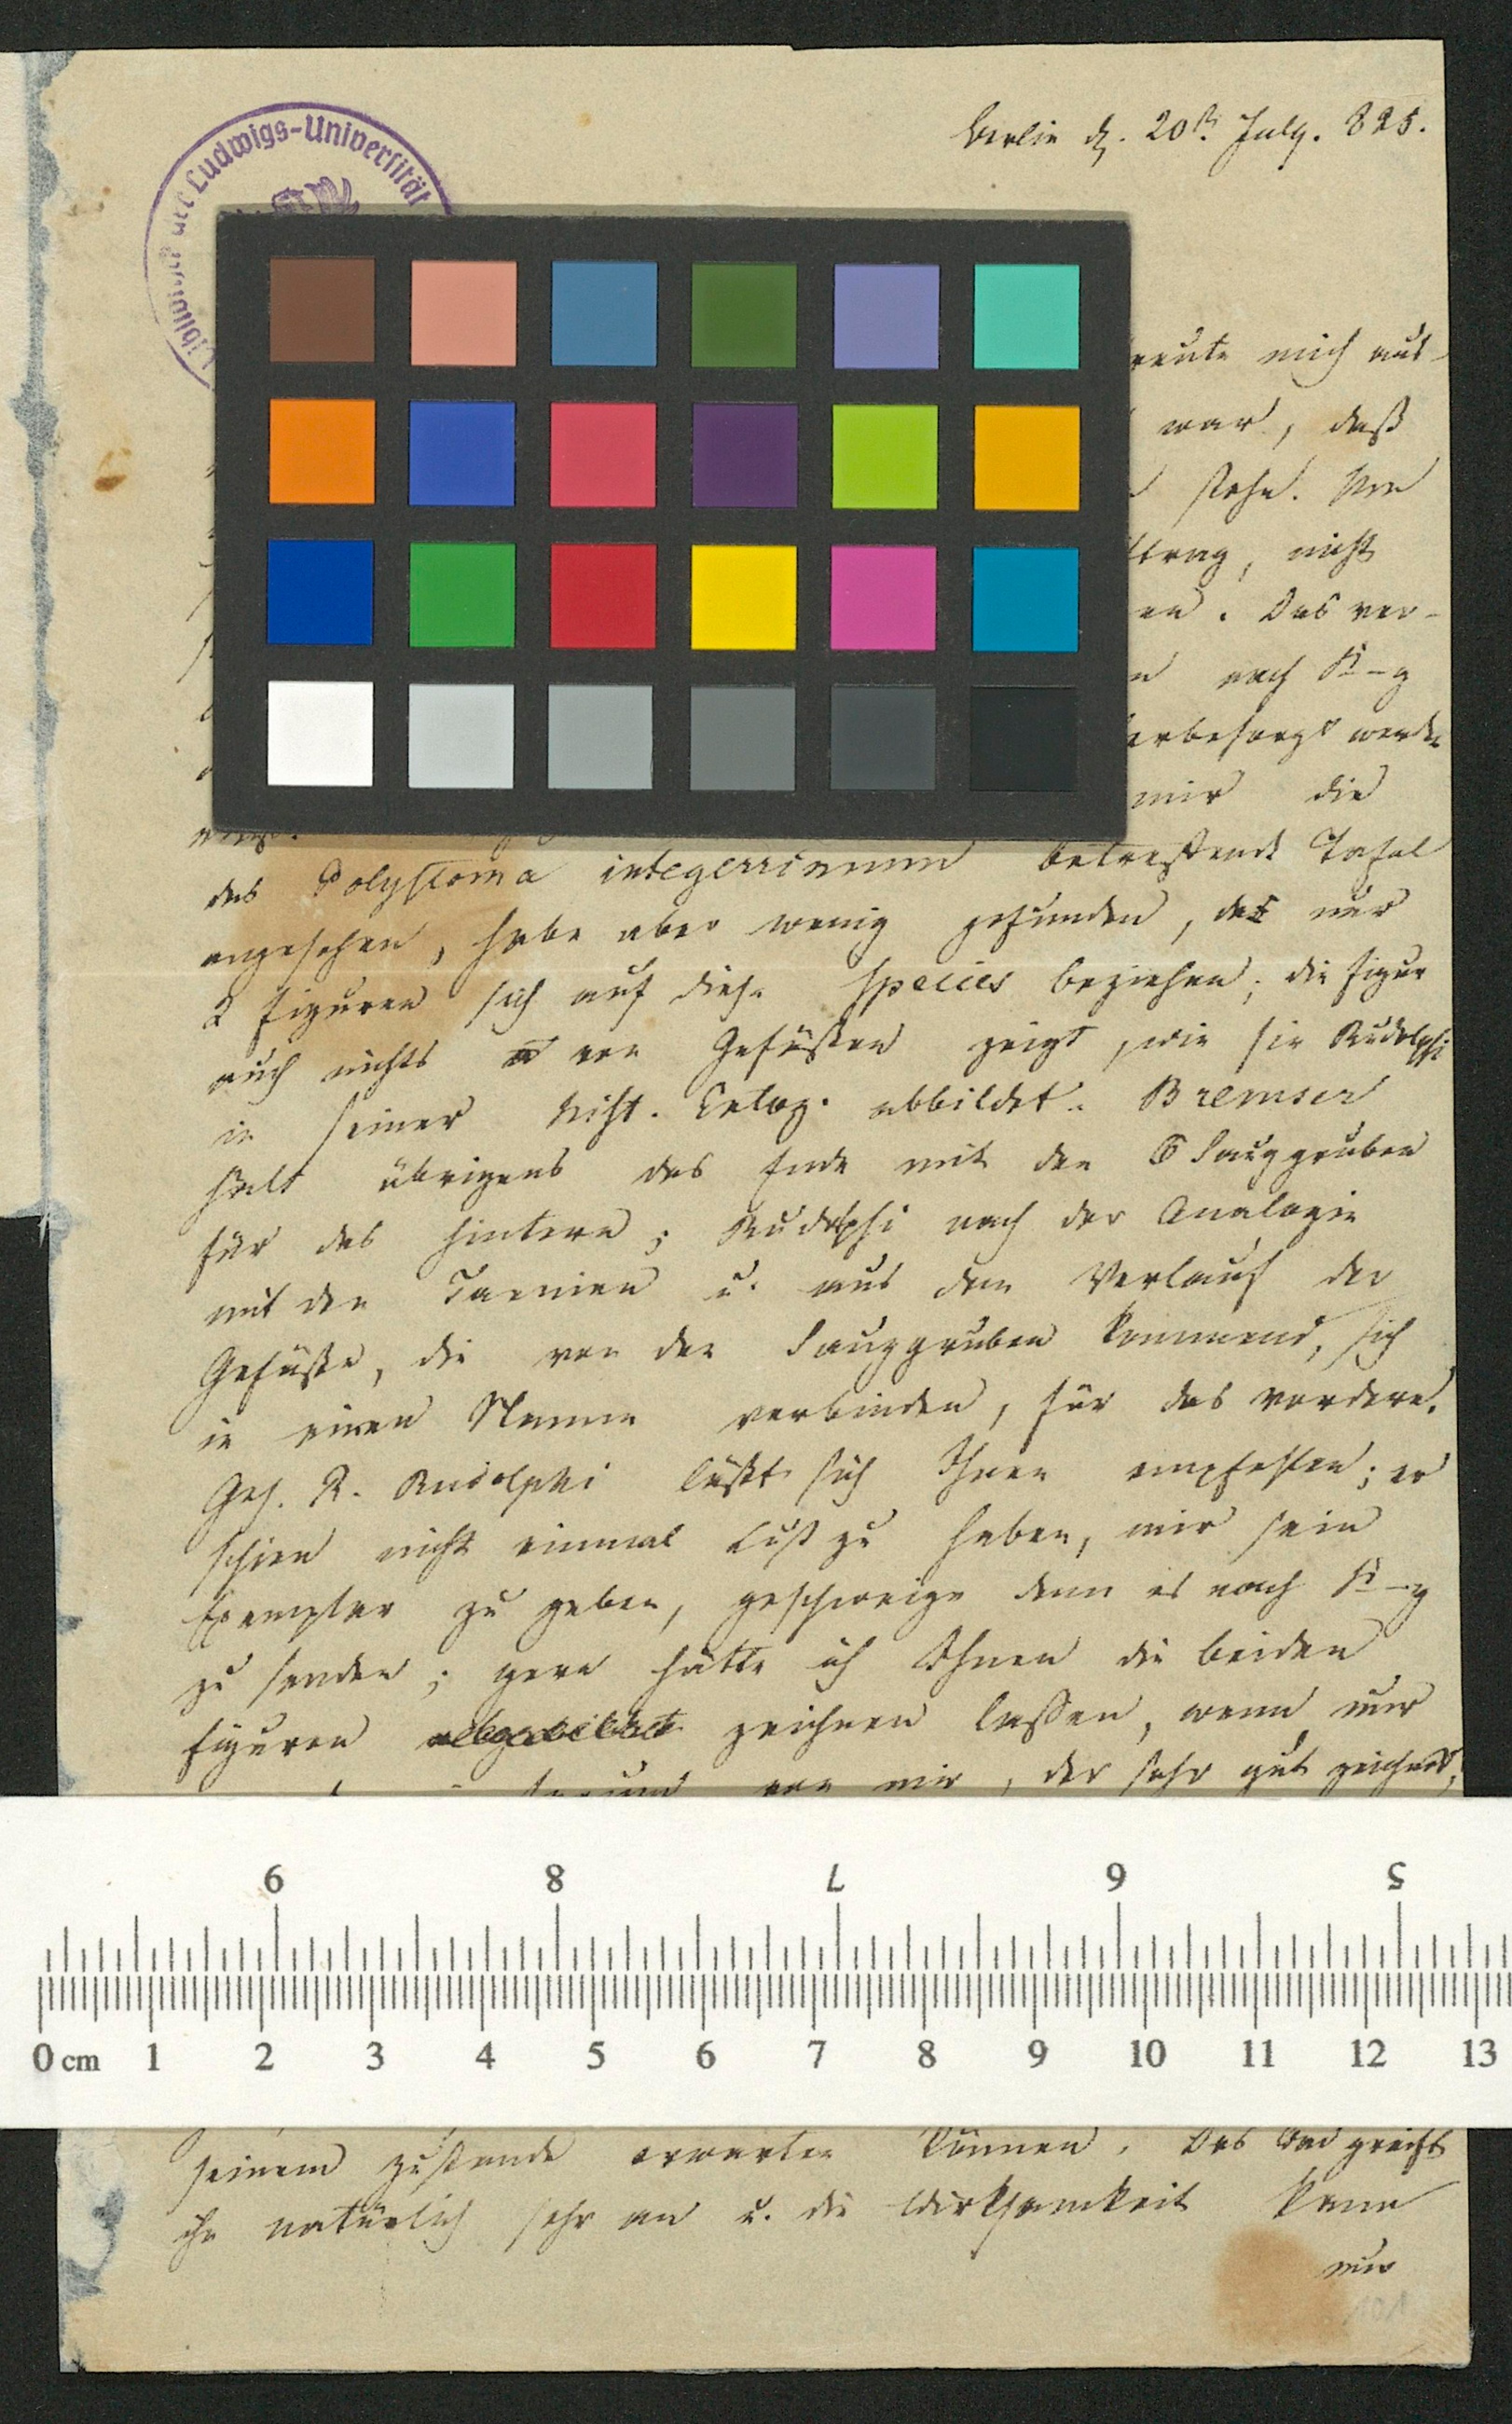 Berlin d. 20st. July. 825.
Bibliothek der Ludwigs-Universität
reute mich aus-
war, daß
stehn. Von
ftrag, nicht
en. Das ver-
n nach K-g
erbesorgt werden
mir die
das Polystoma integerrimum betreffende Tafel
angesehen, habe aber wenig gefunden, da nur
2 Figuren sich auf diese Species beziehen; die Figur
auch nichts von Gefäßen zeigt, wie sie Rudolphi
in seiner Hist. Entoz. abbildet. Bremser
hält übrigens das Ende mit den 6 Sauggruben
für das hintere; Rudolphi nach der Analogie
mit den Taenien u. aus dem Verlauf der
Gefäße, die von den Sauggruben kommend, sich
in einen Stamm verbinden, für das vordere.
Geh. R. Rudolphi läßt sich Ihnen empfehlen; er
schien nicht einmal Lust zu haben, mir sein
Exemplar zu geben, geschweige denn es nach K-g
zu senden; gern hätte ich Ihnen die beiden
Figuren abgebildet zeichnen lassen, wenn nur
Freund von mir, der sehr gut zeichnet,
9 8 7 6 5
0 cm 1 2 3 4 5 6 7 8 9 10 11 12 13
seinem Zustande erwarten können. Das Bad greift
ihn natürlich sehr an u. die Wirksamkeit kann
nur
101